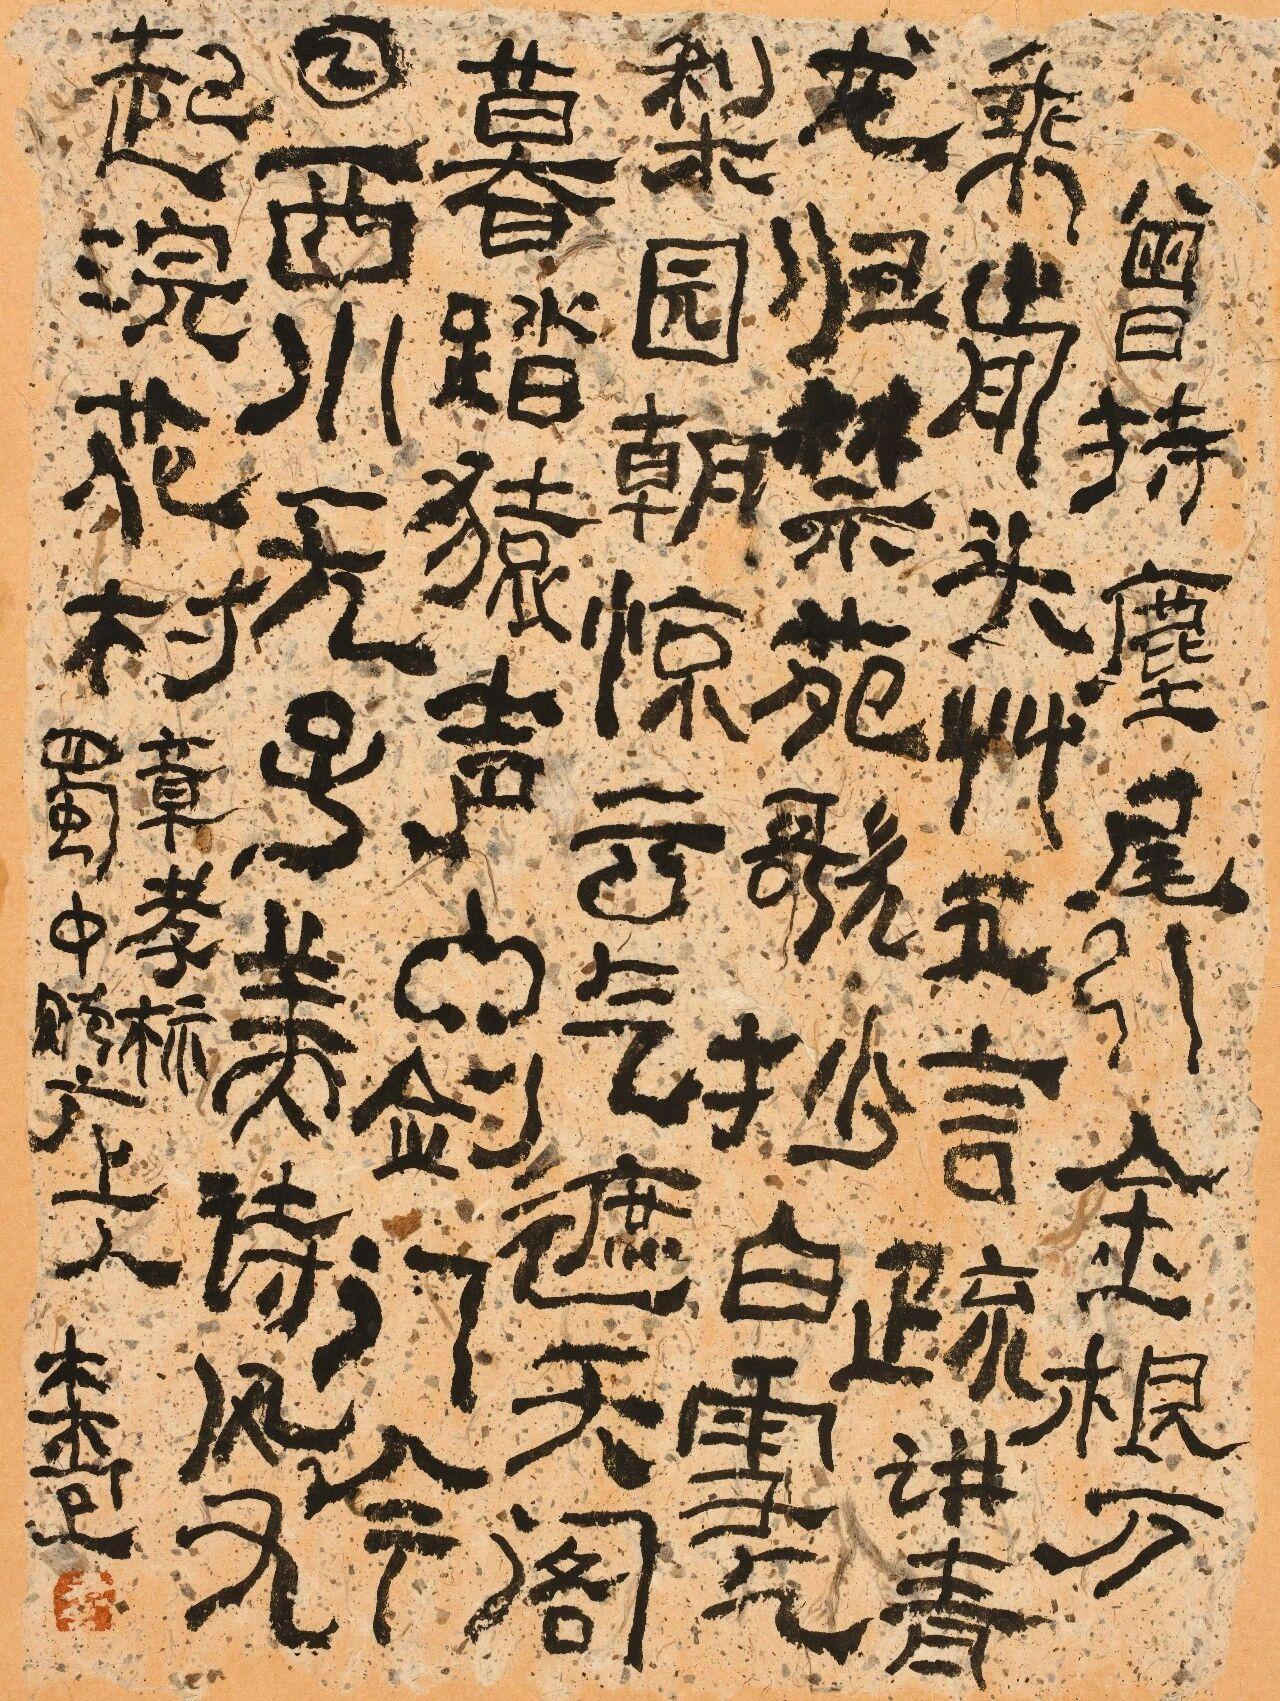 曾持塵尾引金根万
乘前头艸五言疏讲青
龙归禁苑歌抄白雪乞
梨园朝惊云气遮天阁
暮踏猿声入剑门今
日西川无子美诗风又
起浣花村
章孝标
蜀中赠广上人